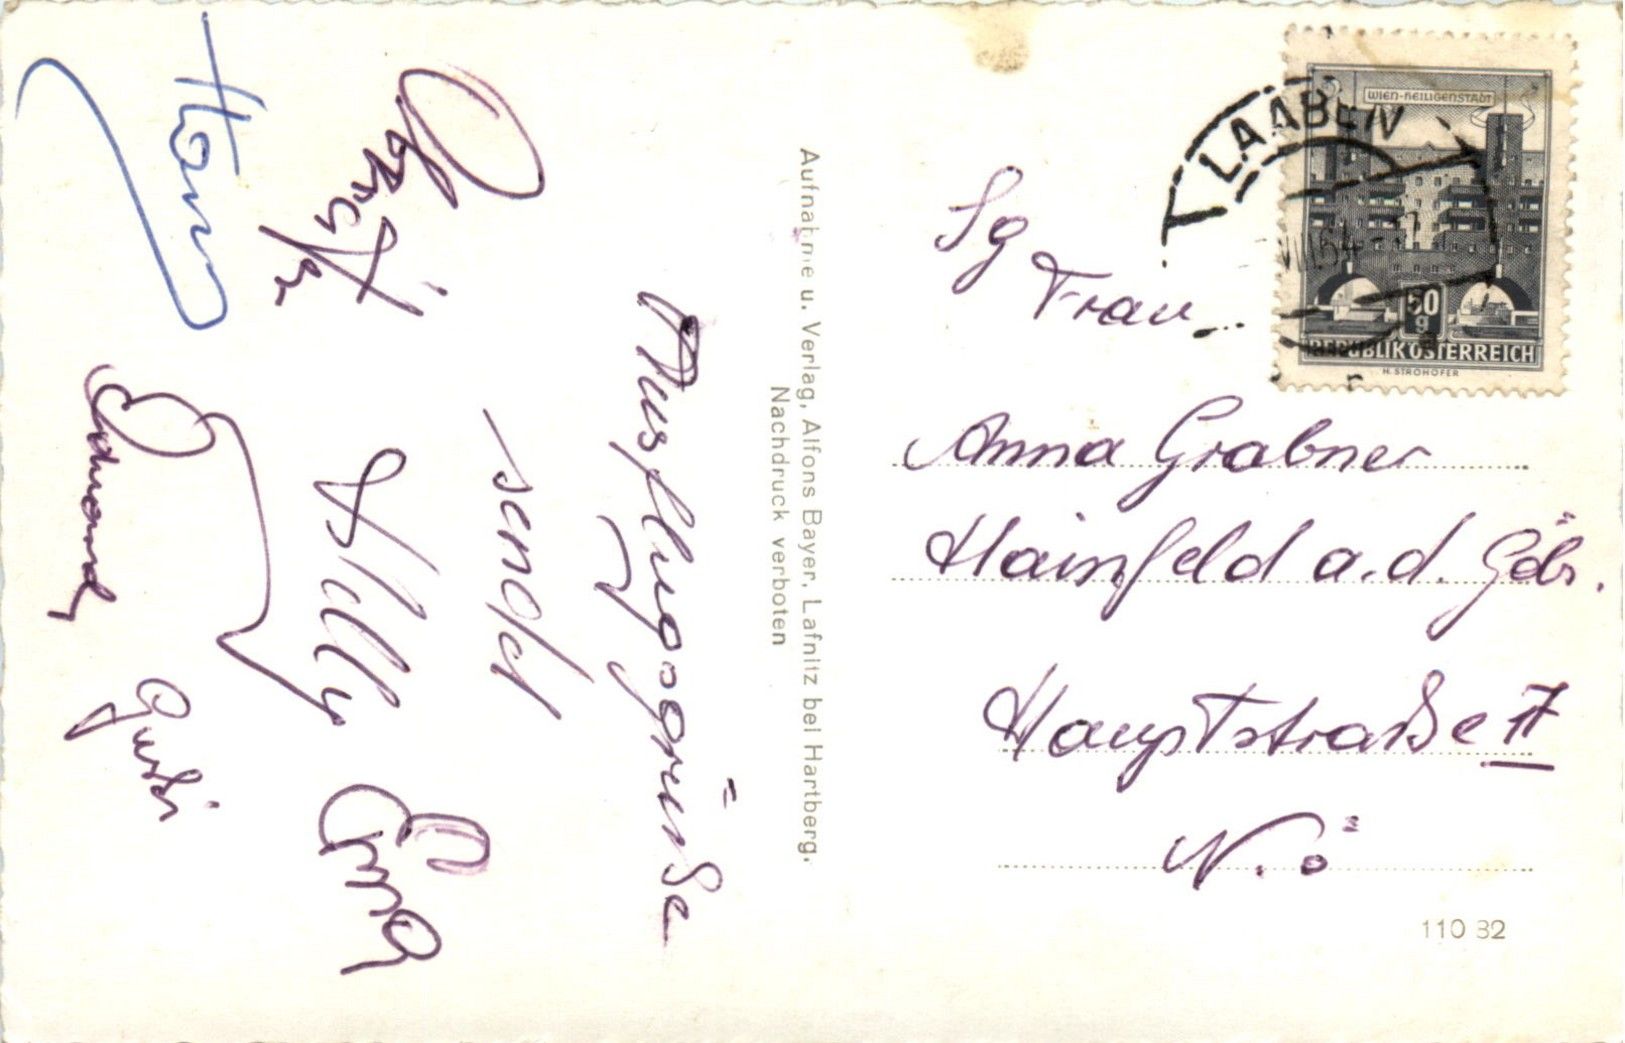 Ausflugsgrüße
send
Willy Erna
Edmund Gusti
Hans
Aufnahme u. Verlag, Alfons Bayer, Lafnitz bei Hartberg.
Nachdruck verboten
LAABEN
WIEN-HEILIGENSTADT
50
g
REPUBLIK ÖSTERREICH
H. STROHOFER
Sg
Frau
Anna Grabner
Hainfeld a.d. Göls.
Hauptstraße
N.Ö
110 82